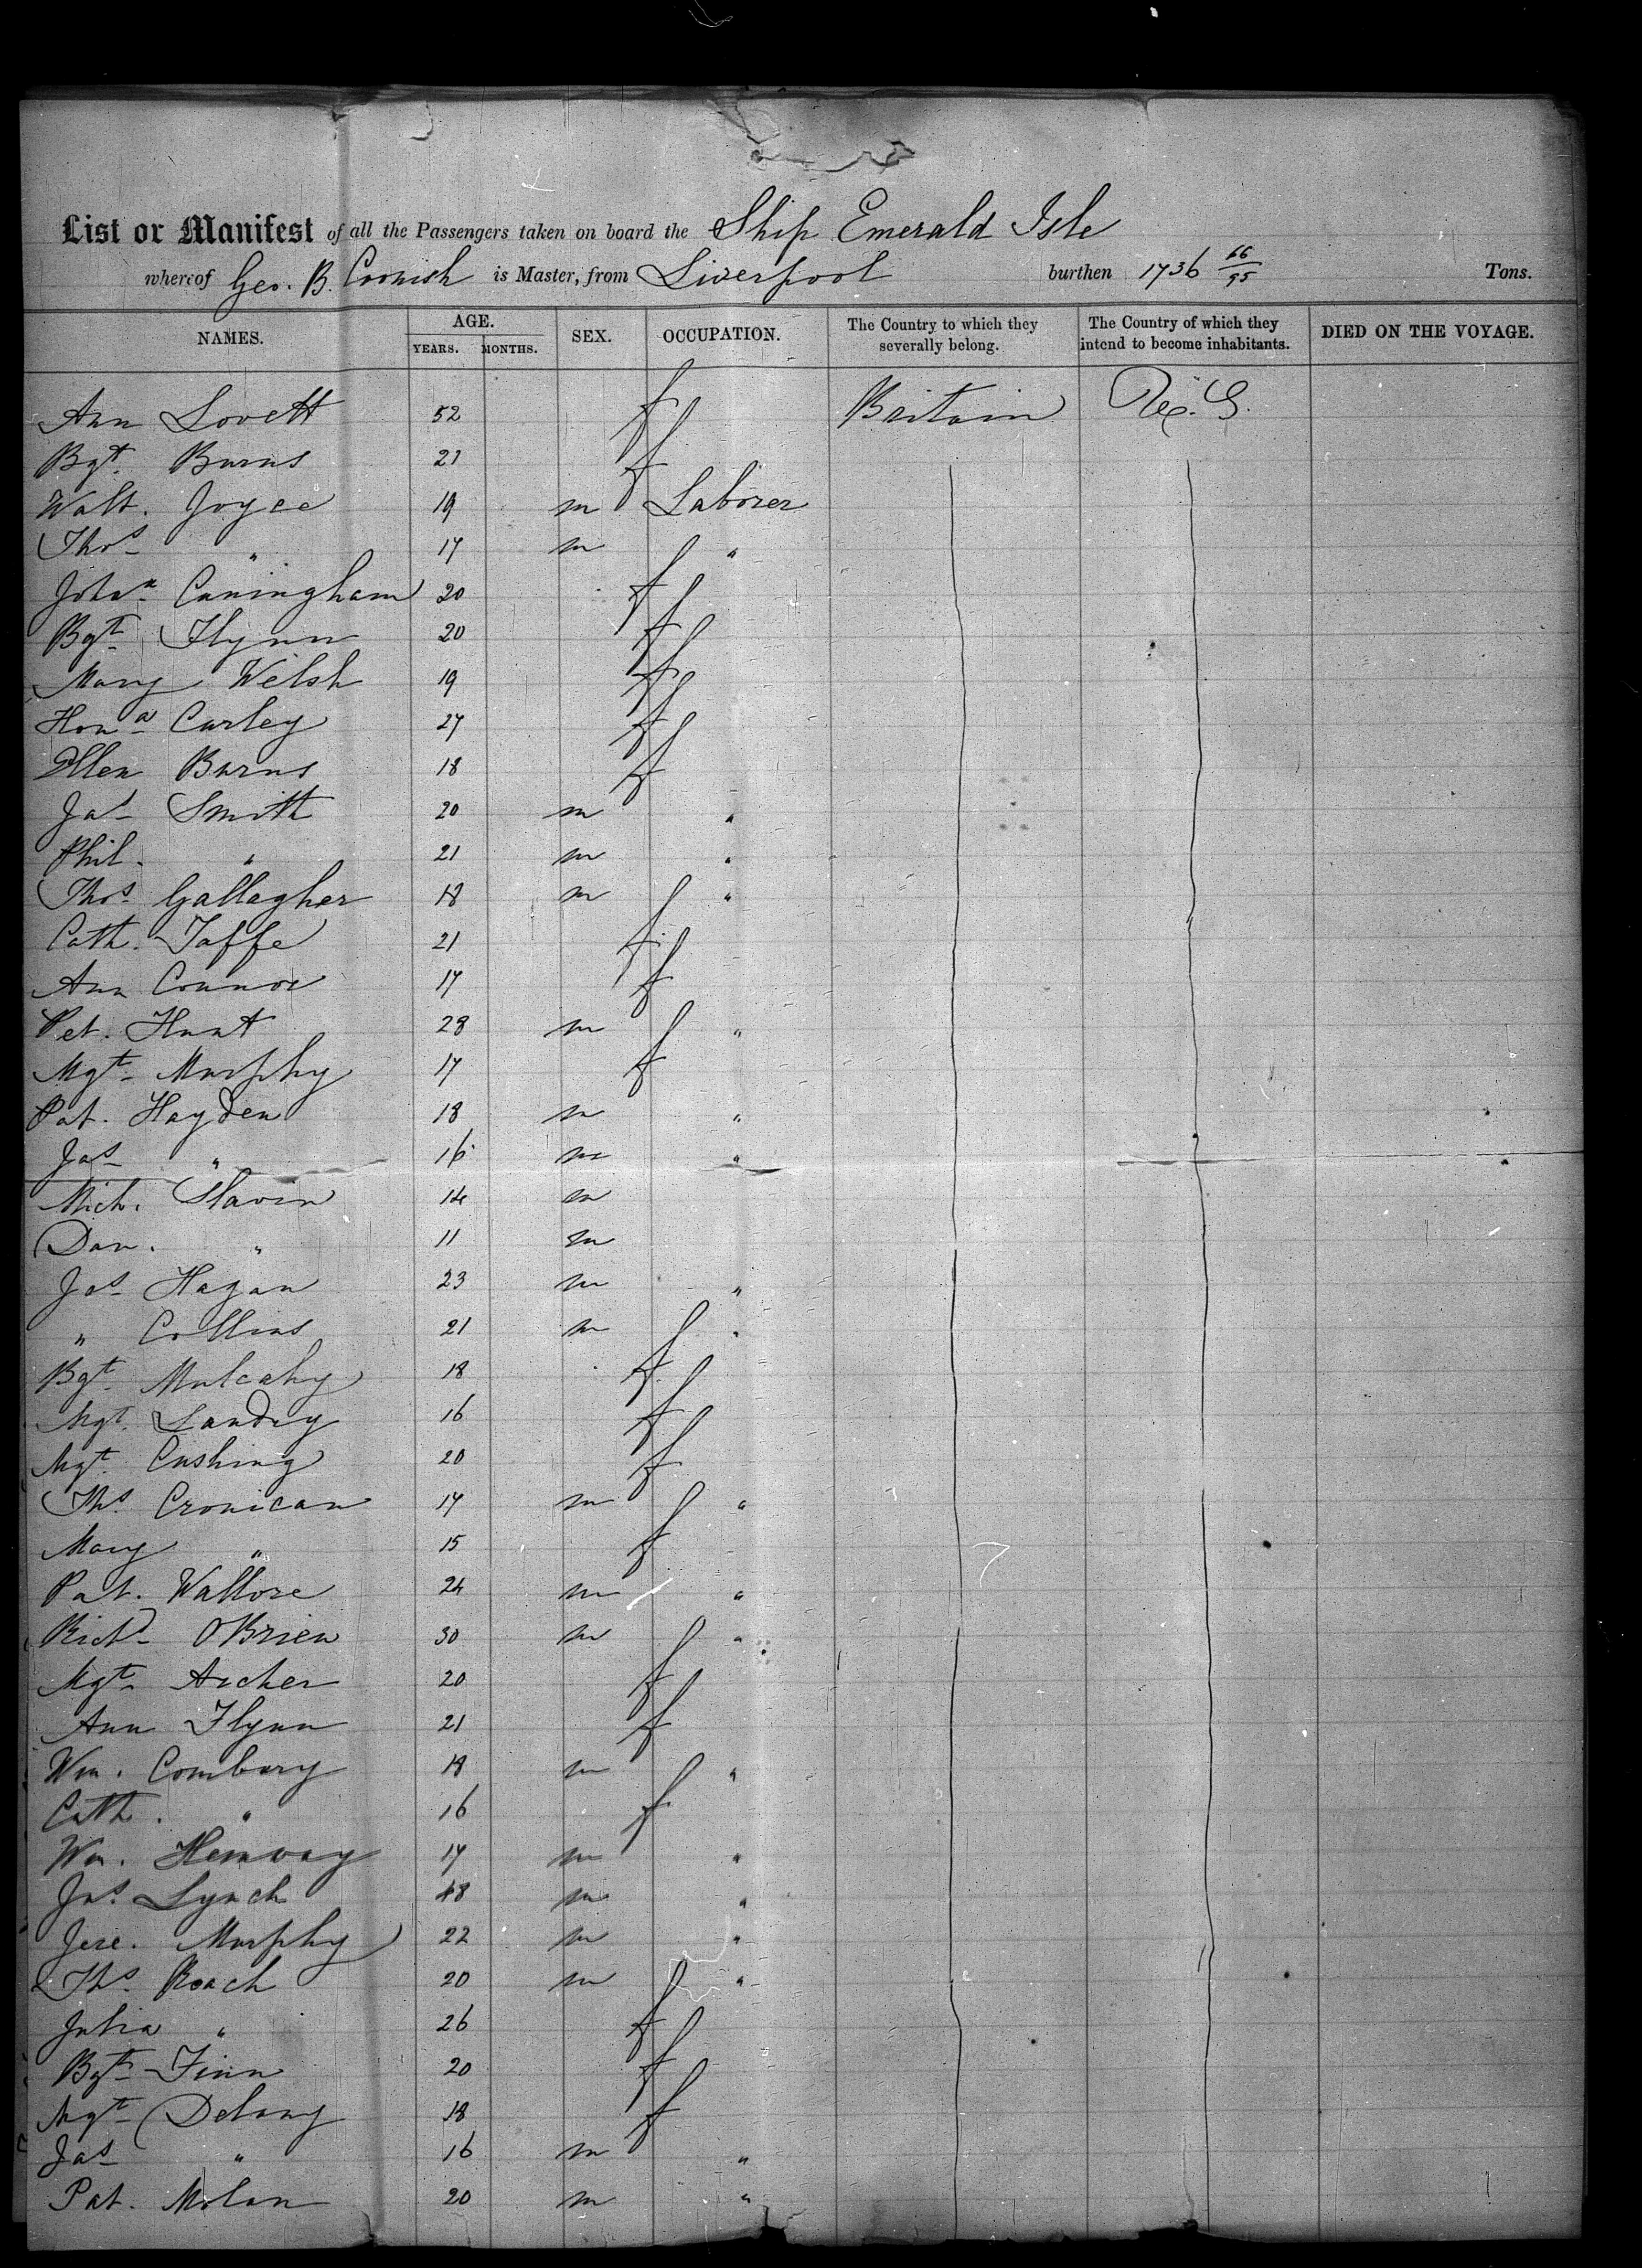 List or Manifest of all the Passengers taken on board the Ship Emerald Isle
whereof Geo. B. Cornish is Master, from Liverpool burthen 1736 66/95 Tons.
NAMES. AGE. YEARS. MONTHS. SEX. OCCUPATION. The Country to which they severally belong. The Country of which they intend to become inhabitants. DIED ON THE VOYAGE.
Ann Lovett 52 f Britain
Bgt. Burns 21 f
Walt. Joyce 19 m Laborer
Thos " 17 m "
Joha Caningham 20 f
Bgt Flynn 20 f
Mary Welsh 19 f
Hona Curley 27 f
Ellen Burns 18 f
Jas Smith 20 m "
Phil. " 21 m "
Thos Gallagher 18 m "
Cath. Taffe 21 f
Ann Connor 17 f
Pet. Hunt 28 m "
Mgt. Murphy 17 f
Pat. Hayden 18 m "
Jas " 16 m "
Mich. Slavin 14 m
Dan. " 11 m
Jas Hagan 23 m "
" Collins 21 m "
Bgt. Mulcahy 18 f
Mgt. Landry 16 f
Mgt. Cushing 20 f
Ths. Cronican 17 m "
Mary " 15 f
Pat. Wallore 24 m "
Richd OBrien 30 m "
Mgt Archer 20 f
Ann Flynn 21 f
Wm. Combary 18 m "
Cath. " 16 f
Wm. Hemway 17 m "
Jas. Lynch 18 m "
Jere. Murphy 22 m "
Ths. Roach 20 m "
Julia " 26 f
Bgt Finn 20 f
Mgt Delany 18 f
Jas " 16 m "
Pat. Molan 20 m "